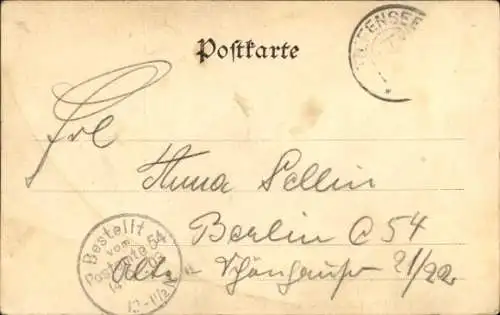 Postkarte
Frl
Anna Sellin
Berlin C 54
Alte Schönhauser 21/22
Bestellt
vom
Postamte 54
14 03
12-11½N